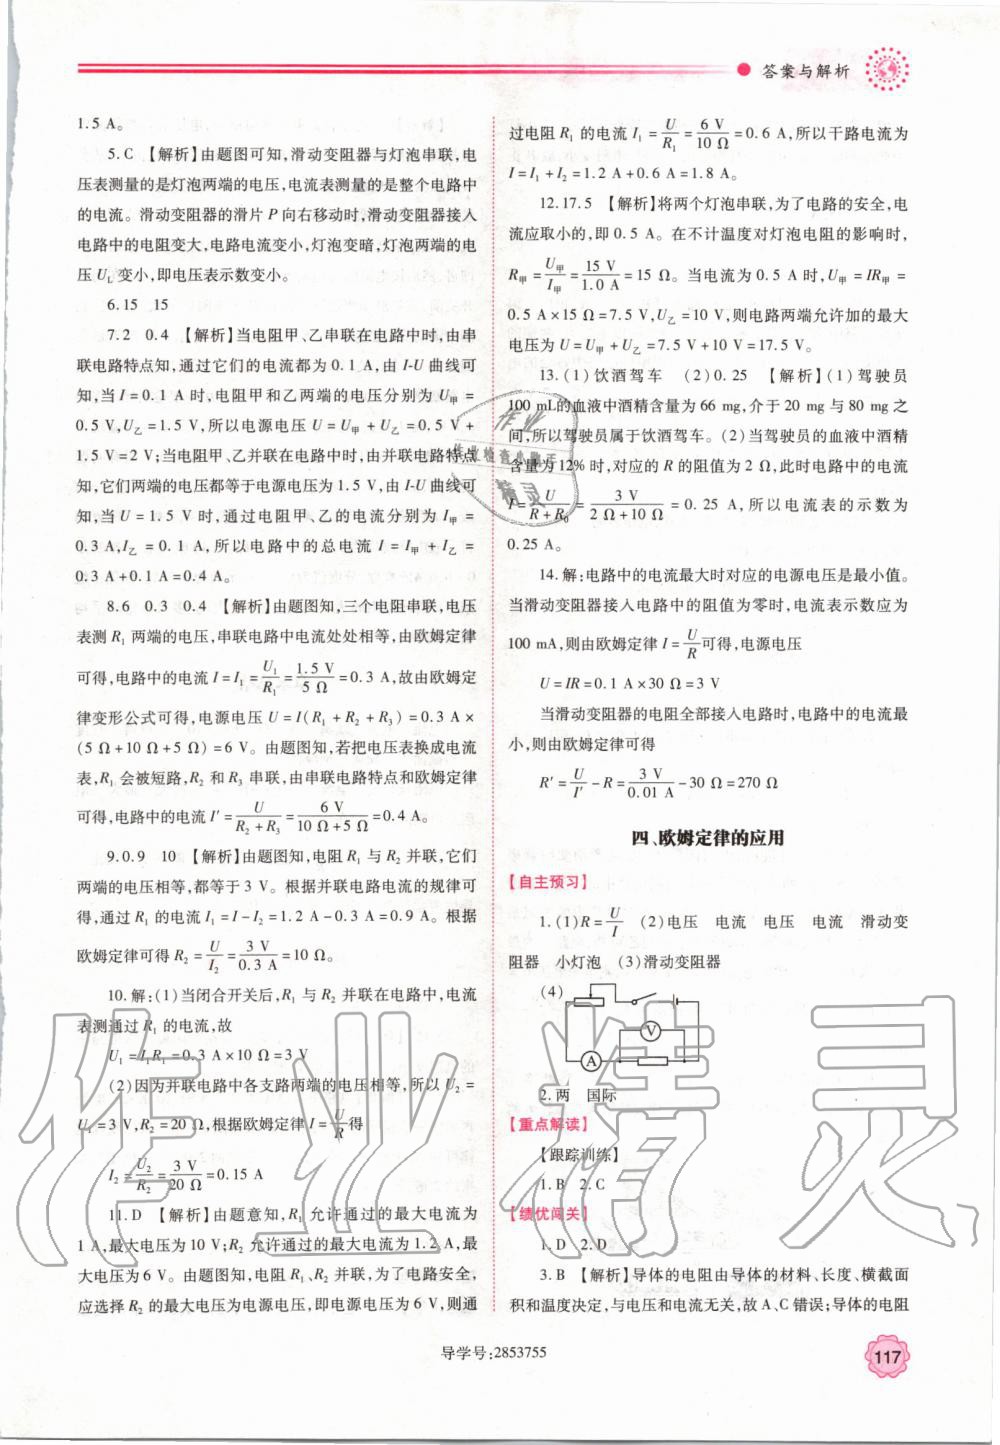 答案与解析
1.5 A。
5.C 【解析】由题图可知,滑动变阻器与灯泡串联,电
压表测量的是灯泡两端的电压,电流表测量的是整个电路中
的电流。滑动变阻器的滑片 P 向右移动时,滑动变阻器接入
电路中的电阻变大,电路电流变小,灯泡变暗,灯泡两端的电
压 U_L 变小,即电压表示数变小。
6.15 15
7.2 0.4 【解析】当电阻甲、乙串联在电路中时,由串
联电路特点知,通过它们的电流都为 0.1 A,由 I-U 曲线可
知,当 I=0.1 A 时,电阻甲和乙两端的电压分别为 U甲=
0.5 V,U乙=1.5 V,所以电源电压 U=U甲+U乙=0.5 V+
1.5 V=2 V;当电阻甲、乙并联在电路中时,由并联电路特点
知,它们两端的电压都等于电源电压为 1.5 V,由 I-U 曲线可
知,当 U=1.5 V 时,通过电阻甲、乙的电流分别为 I甲=
0.3 A,I乙=0.1 A,所以电路中的总电流 I=I甲+I乙=
0.3 A+0.1 A=0.4 A。
8.6 0.3 0.4 【解析】由题图知,三个电阻串联,电压
表测 R1 两端的电压,串联电路中电流处处相等,由欧姆定律
可得,电路中的电流 I=I1=U1/R1=1.5 V/5 Ω=0.3 A,故由欧姆定
律变形公式可得,电源电压 U=I(R1+R2+R3)=0.3 A×
(5 Ω+10 Ω+5 Ω)=6 V。由题图知,若把电压表换成电流
表,R1 会被短路,R2 和 R3 串联,由串联电路特点和欧姆定律
可得,电路中的电流 I′=U/(R2+R3)=6 V/(10 Ω+5 Ω)=0.4 A。
9.0.9 10 【解析】由题图知,电阻 R1 与 R2 并联,它们
两端的电压相等,都等于 3 V。根据并联电路电流的规律可
得,通过 R1 的电流 I1=I-I2=1.2 A-0.3 A=0.9 A。根据
欧姆定律可得 R2=U/I2=3 V/0.3 A=10 Ω。
10.解:(1)当闭合开关后,R1 与 R2 并联在电路中,电流
表测通过 R1 的电流,故
U1=I1R1=0.3 A×10 Ω=3 V
(2)因为并联电路中各支路两端的电压相等,所以 U2=
U1=3 V,R2=20 Ω,根据欧姆定律 I=U/R得
I2=U2/R2=3 V/20 Ω=0.15 A
11.D 【解析】由题意知,R1 允许通过的最大电流为
1 A,最大电压为 10 V;R2 允许通过的最大电流为 1.2 A,最
大电压为 6 V。由题图知,电阻 R1、R2 并联,为了电路安全,
应选择 R2 的最大电压为电源电压,即电源电压为 6 V,则通
过电阻 R1 的电流 I1=U/R1=6 V/10 Ω=0.6 A,所以干路电流为
I=I1+I2=1.2 A+0.6 A=1.8 A。
12.17.5 【解析】将两个灯泡串联,为了电路的安全,电
流应取小的,即 0.5 A。在不计温度对灯泡电阻的影响时,
R甲=U甲/I甲=15 V/1.0 A=15 Ω。当电流为 0.5 A 时,U甲=IR甲=
0.5 A×15 Ω=7.5 V,U乙=10 V,则电路两端允许加的最大
电压为 U=U甲+U乙=7.5 V+10 V=17.5 V。
13.(1)饮酒驾车 (2)0.25 【解析】(1)驾驶员
100 mL的血液中酒精含量为 66 mg,介于 20 mg 与 80 mg 之
间,所以驾驶员属于饮酒驾车。(2)当驾驶员的血液中酒精
含量为12%时,对应的 R 的阻值为 2 Ω,此时电路中的电流
I=U/(R+R0)=3 V/(2 Ω+10 Ω)=0.25 A,所以电流表的示数为
0.25 A。
14.解:电路中的电流最大时对应的电源电压是最小值。
当滑动变阻器接入电路中的阻值为零时,电流表示数应为
100 mA,则由欧姆定律 I=U/R可得,电源电压
U=IR=0.1 A×30 Ω=3 V
当滑动变阻器的电阻全部接入电路时,电路中的电流最
小,则由欧姆定律可得
R′=U/I′-R=3 V/0.01 A-30 Ω=270 Ω
四、欧姆定律的应用
【自主预习】
1.(1)R=U/I (2)电压 电流 电压 电流 滑动变
阻器 小灯泡 (3)滑动变阻器
(4)
V
A
2.两 国际
【重点解读】
【跟踪训练】
1.B 2.C
【绩优闯关】
1.D 2.D
3.B 【解析】导体的电阻由导体的材料、长度、横截面
积和温度决定,与电压和电流无关,故 A、C 错误;导体的电阻
导学号:2853755
117
作业精灵
作业
作业检查小助手
精灵